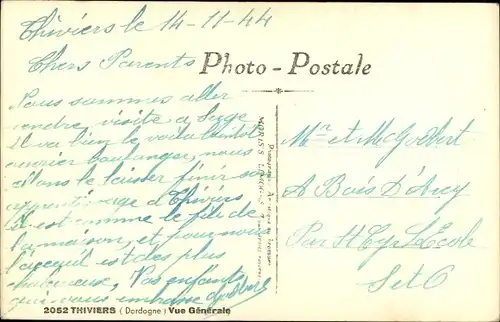 Thiviers le 14-11-44
Chers Parents
Photo-Postale
Nous sommes aller
rendre visite a Serge
il va bien le voila bientot
ouvrier boulanger, nous
allons le laisser finir son
apprentissage a Thiviers
Il est comme le fils de
la maison, et pour nous
l'accueil est des plus
chaleureux, Vos enfants
qui vous embrasse
Mr et Me
A Bois D'Arcy
Par St Cyr L'Ecole
S et O
2052 THIVIERS (Dordogne) Vue Générale